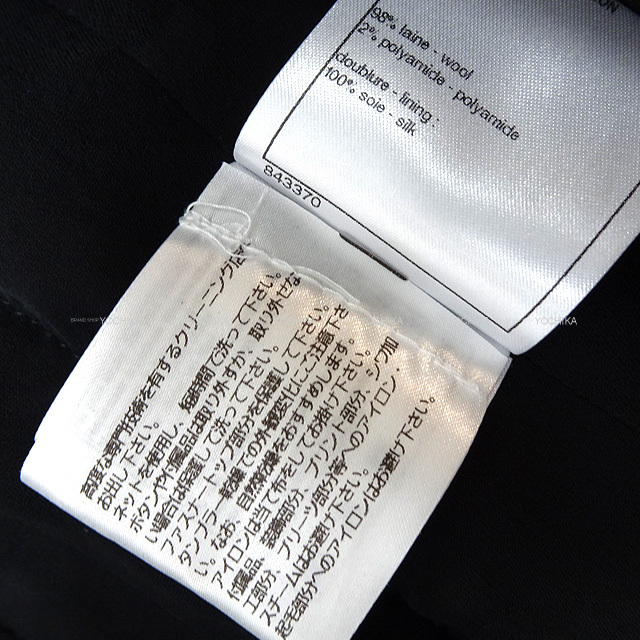 98% laine - wool
2% polyamide - polyamide
doublure - lining :
100% soie - silk
843370
高度な専門技術を有するクリーニング店に
お出し下さい。
ネットを使用し、短時間で洗って下さい。
ボタンや付属品は取り外すか、取り外せな
い場合は保護して洗って下さい。
ファスナー トップ部分を保護して下さい。
タンブラー乾燥での外観変化にご注意下さ
い。なお、自然乾燥をおすすめします。
アイロンは当て布をしてお掛け下さい。
付属品、装飾部分、プリント部分、シワ加
工部分、プリーツ部分等へのアイロン・
スチームはお避け下さい。
起毛部分へのアイロンはお避け下さい。
BRAND SHOP